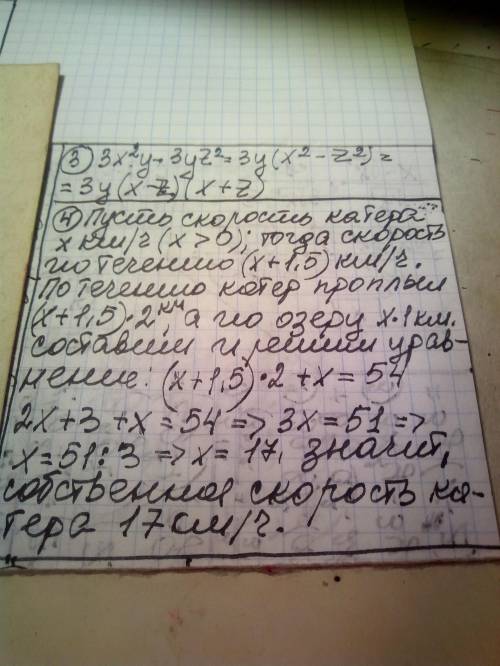 ③ 3x²y - 3yz² = 3y(x² - z²) =
= 3y(x-z)(x+z)
④ Пусть скорость катера
x км/ч (x > 0), тогда скорость
по течению (x+1,5) км/ч.
По течению катер проплыл
(x+1,5)·2 км, а по озеру x·1 км.
Составим и решим урав-
нение: (x+1,5)·2 + x = 54
2x + 3 + x = 54 => 3x = 51 =>
x = 51 : 3 => x = 17. Значит,
собственная скорость ка-
тера 17 км/ч.